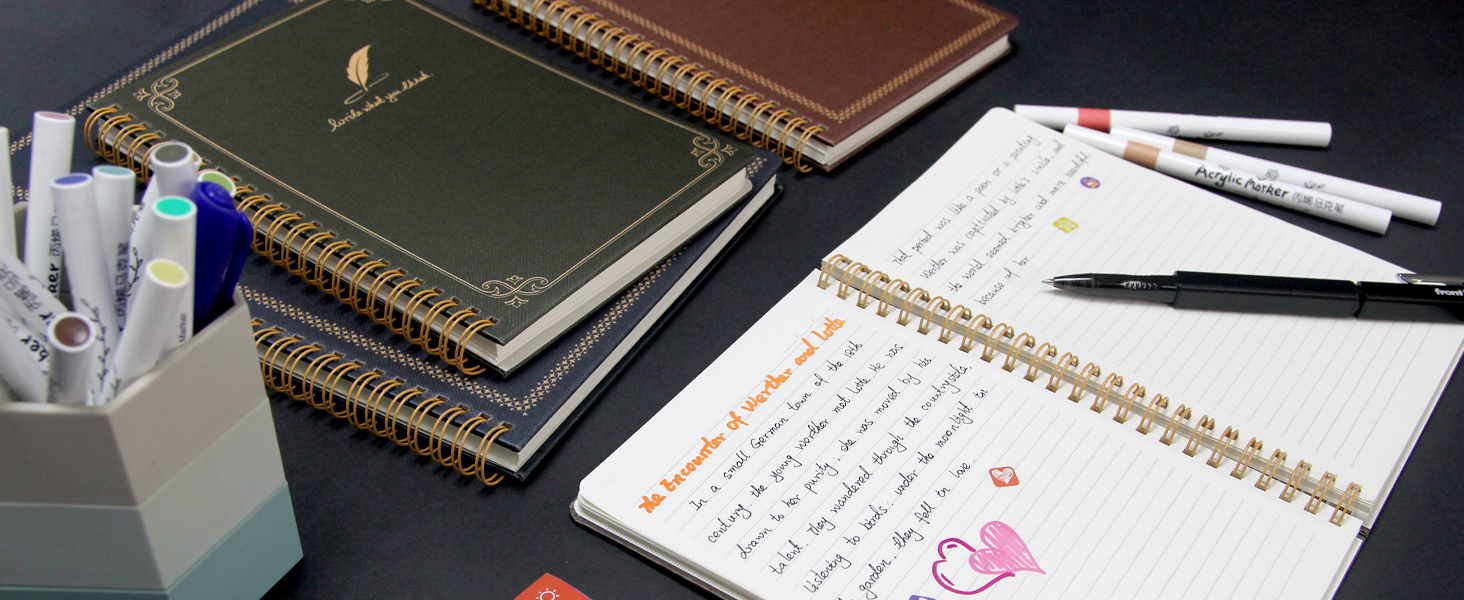 write what you think
that period was like a poem or a painting
Werther was captivated by Lotte's smile, and
the world seemed brighter and more beautiful
because of her
The Encounter of Werther and Lotte
In a small German town of the 18th
century the young Werther met Lotte He was
drawn to her purity; she was moved by his
talent. they wandered through the countryside,
listening to birds. under the moonlight in
garden. they fell in love.
Acrylic Marker 丙烯马克笔
front
丙烯马克笔